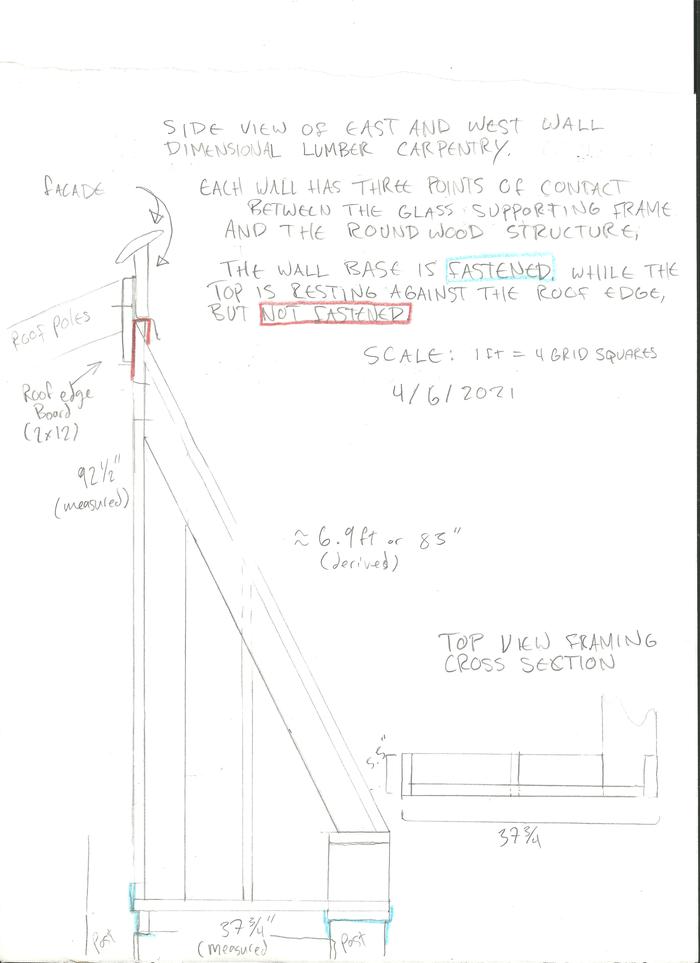 SIDE VIEW OF EAST AND WEST WALL
DIMENSIONAL LUMBER CARPENTRY.
FACADE
EACH WALL HAS THREE POINTS OF CONTACT
BETWEEN THE GLASS SUPPORTING FRAME
AND THE ROUND WOOD STRUCTURE,
THE WALL BASE IS FASTENED. WHILE THE
TOP IS RESTING AGAINST THE ROOF EDGE,
BUT NOT FASTENED.
ROOF POLES
SCALE: 1 ft = 4 GRID SQUARES
4/6/2021
Roof edge
Board
(2x12)
92 ½"
(measured)
≈ 6.9 ft or 83"
(derived)
TOP VIEW FRAMING
CROSS SECTION
5.5"
37 ¾
37 ¾"
(measured)
Post
Post